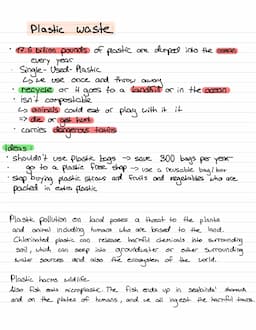 Plastic waste
• 17.6 billion pounds of plastic are dumped into the ocean
every year
Single-Used-Plastic
↳ we use once and throw away
• recycle or it goes to a landfill or in the ocean
• isn't compostable
↳ animals could eat or play with it
⇒ die or get hurt
• carries dangerous toxins
Ideas
• shouldn't use plastic bags → save 300 bags per year
go to a plastic free shop → use a reusable bag/box
• stop buying plastic straws and fruits and vegetables who are
packed in extra plastic
Plastic pollution on land poses a threat to the plants
and animal including humans who are based to the land.
Chlorinated plastic can release harmful chemicals into surrounding
soil, which can seep into groundwater or other surrounding
water sources and also the ecosystem of the world.
Plastic harms wildlife
Also fish eats microplastic. The fish ends up in seabirds' stomach
and on the plates of humans, and we all ingest the harmful toxins.